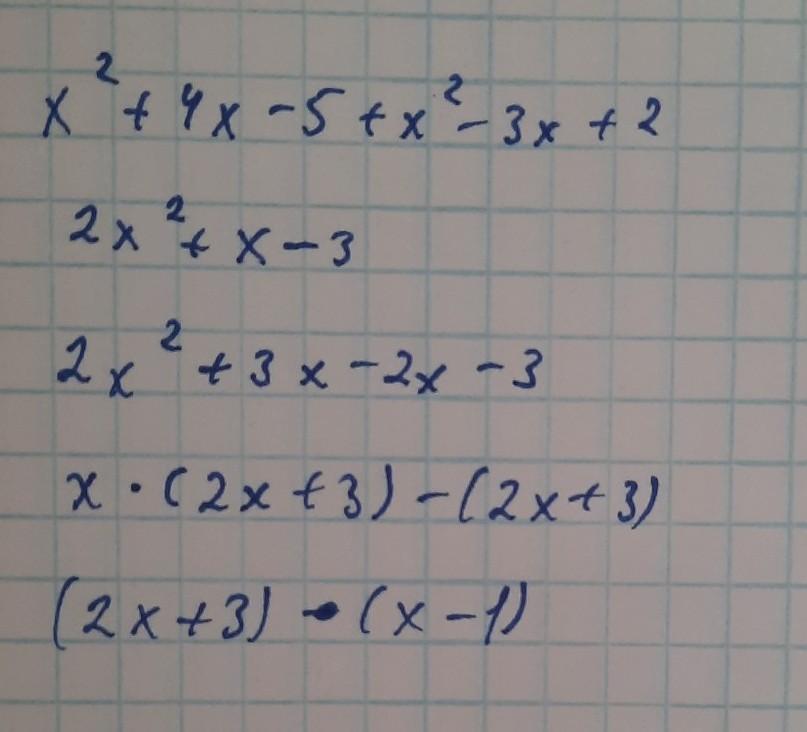 x² + 4x - 5 + x² - 3x + 2
2x² + x - 3
2x² + 3x - 2x - 3
x · (2x + 3) - (2x + 3)
(2x + 3) · (x - 1)